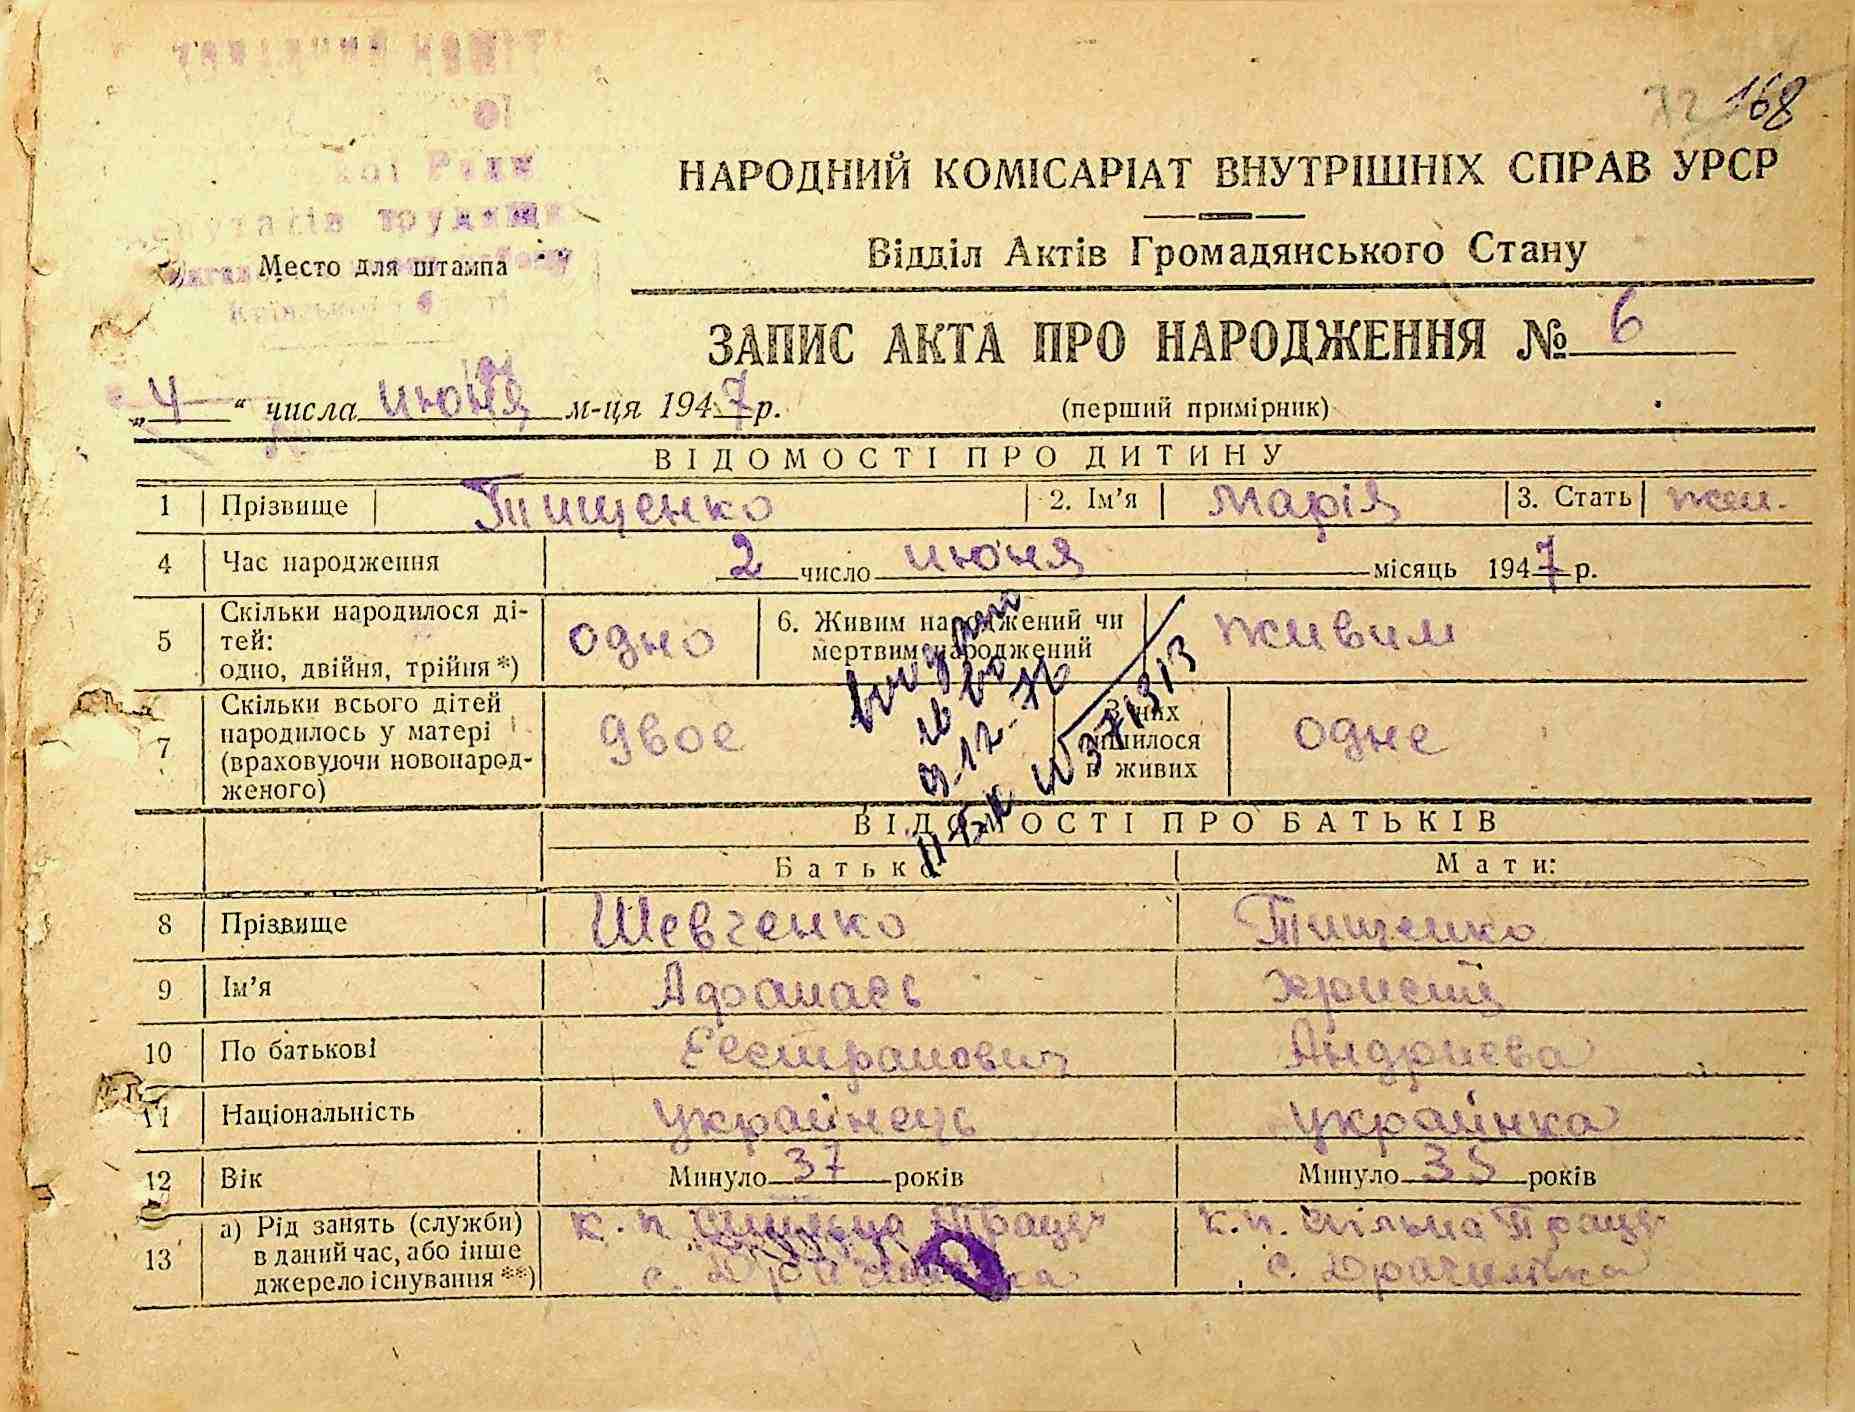 72 168
НАРОДНИЙ КОМІСАРІАТ ВНУТРІШНІХ СПРАВ УРСР
Відділ Актів Громадянського Стану
кої Ради
депутатів трудящих
Место для штампа
ЗАПИС АКТА ПРО НАРОДЖЕННЯ № 6
„4“ числа июня м-ця 1947 р.
(перший примірник)
ВІДОМОСТІ ПРО ДИТИНУ
1 Прізвище Тищенко 2. Ім'я Марія 3. Стать жен.
4 Час народження 2 число июня місяць 1947 р.
5 Скільки народилося ді-
тей:
одно, двійня, трійня *) одно 6. Живим народжений чи
мертвим народжений живим
7 Скільки всього дітей
народилось у матері
(враховуючи новонарод-
женого) двое З них
лишилося
в живих одне
9-12-72
№ 371313
ВІДОМОСТІ ПРО БАТЬКІВ
Батько Мати:
8 Прізвище Шевченко Тищенко
9 Ім'я Афанась Христя
10 По батькові Андриєва
11 Національність Українець Українка
12 Вік Минуло 37 років Минуло 35 років
13 а) Рід занять (служби)
в даний час, або інше
джерело існування **)
к. п. Спільна Праця к. п. Спільна Праця
с. Драчилівка